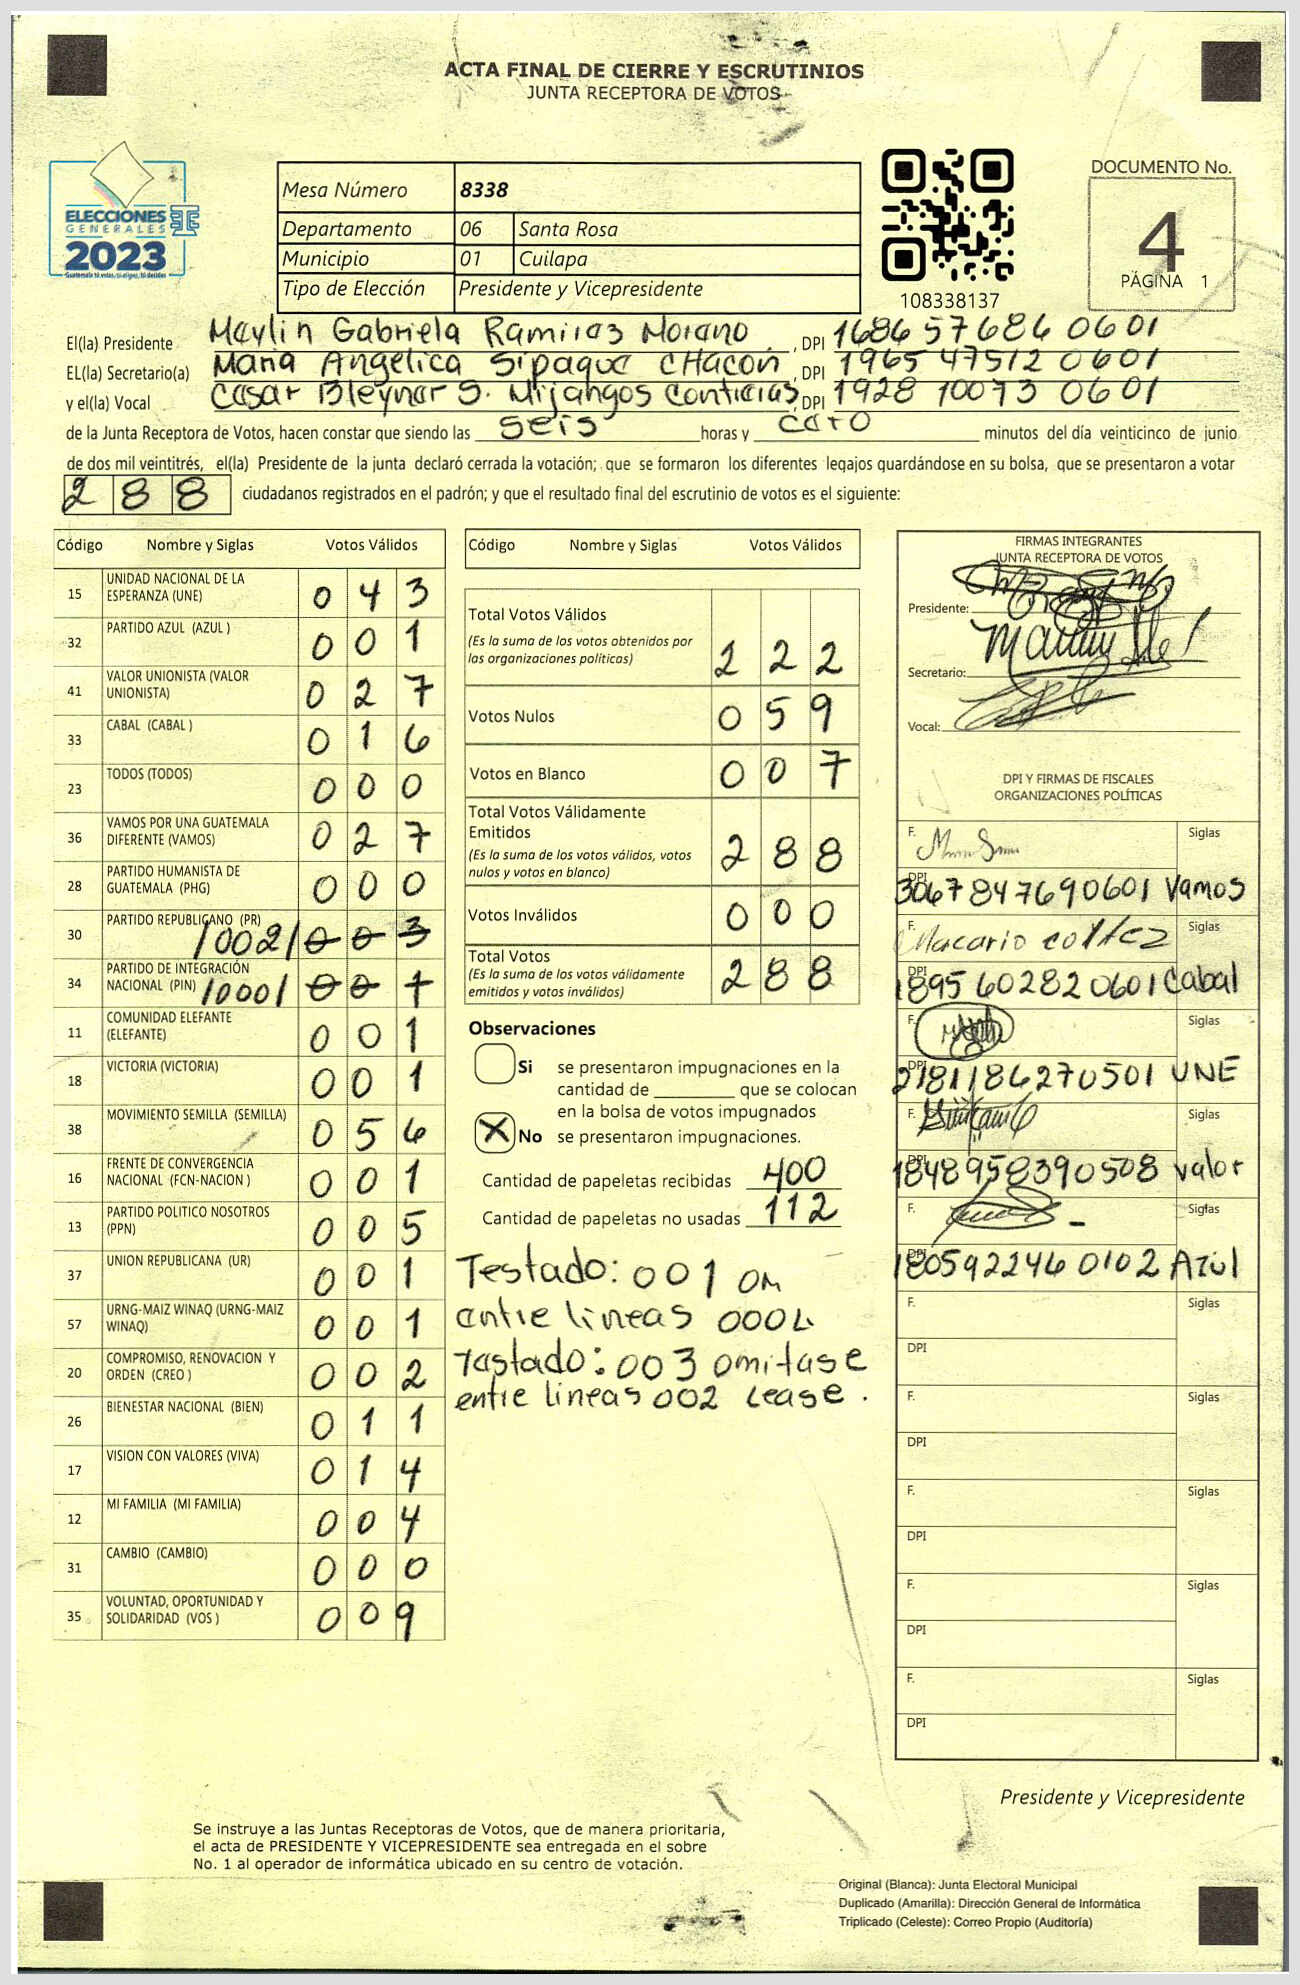 ACTA FINAL DE CIERRE Y ESCRUTINIOS
JUNTA RECEPTORA DE VOTOS
ELECCIONES
GENERALES
2023
Guatemala tú votas, tú eliges, tú decides
Mesa Número 8338
Departamento 06 Santa Rosa
Municipio 01 Cuilapa
Tipo de Elección Presidente y Vicepresidente
108338137
DOCUMENTO No.
4
PÁGINA 1
El(la) Presidente Maylin Gabriela Ramiras Morano, DPI 1686 57686 0601
EL(la) Secretario(a) Maria Angelica Sipaque CHacon, DPI 1965 47512 0601
y el(la) Vocal Casar Bleynar S. Mijangos Contrarias, DPI 1928 10073 0601
de la Junta Receptora de Votos, hacen constar que siendo las seis horas y caro minutos del día veinticinco de junio
de dos mil veintitrés, el(la) Presidente de la junta declaró cerrada la votación; que se formaron los diferentes legajos guardándose en su bolsa, que se presentaron a votar
288 ciudadanos registrados en el padrón; y que el resultado final del escrutinio de votos es el siguiente:
Código Nombre y Siglas Votos Válidos
15 UNIDAD NACIONAL DE LA ESPERANZA (UNE) 0 4 3
32 PARTIDO AZUL (AZUL ) 0 0 1
41 VALOR UNIONISTA (VALOR UNIONISTA) 0 2 7
33 CABAL (CABAL ) 0 1 6
23 TODOS (TODOS) 0 0 0
36 VAMOS POR UNA GUATEMALA DIFERENTE (VAMOS) 0 2 7
28 PARTIDO HUMANISTA DE GUATEMALA (PHG) 0 0 0
30 PARTIDO REPUBLICANO (PR) /002/ 0 0 3
34 PARTIDO DE INTEGRACIÓN NACIONAL (PIN) /000/ 0 0 1
11 COMUNIDAD ELEFANTE (ELEFANTE) 0 0 1
18 VICTORIA (VICTORIA) 0 0 1
38 MOVIMIENTO SEMILLA (SEMILLA) 0 5 6
16 FRENTE DE CONVERGENCIA NACIONAL (FCN-NACION ) 0 0 1
13 PARTIDO POLITICO NOSOTROS (PPN) 0 0 5
37 UNION REPUBLICANA (UR) 0 0 1
57 URNG-MAIZ WINAQ (URNG-MAIZ WINAQ) 0 0 1
20 COMPROMISO, RENOVACION Y ORDEN (CREO ) 0 0 2
26 BIENESTAR NACIONAL (BIEN) 0 1 1
17 VISION CON VALORES (VIVA) 0 1 4
12 MI FAMILIA (MI FAMILIA) 0 0 4
31 CAMBIO (CAMBIO) 0 0 0
35 VOLUNTAD, OPORTUNIDAD Y SOLIDARIDAD (VOS ) 0 0 9
Código Nombre y Siglas Votos Válidos
Total Votos Válidos 2 2 2
(Es la suma de los votos obtenidos por
las organizaciones políticas)
Votos Nulos 0 5 9
Votos en Blanco 0 0 7
Total Votos Válidamente
Emitidos 2 8 8
(Es la suma de los votos válidos, votos
nulos y votos en blanco)
Votos Inválidos 0 0 0
Total Votos 2 8 8
(Es la suma de los votos válidamente
emitidos y votos inválidos)
Observaciones
Si se presentaron impugnaciones en la
cantidad de ________ que se colocan
en la bolsa de votos impugnados
X No se presentaron impugnaciones.
Cantidad de papeletas recibidas 400
Cantidad de papeletas no usadas 112
Testado: 001 OM
entre lineas 000L
Tastado: 003 omitase
entre lineas 002 Lease.
FIRMAS INTEGRANTES
JUNTA RECEPTORA DE VOTOS
Presidente:
Secretario:
Vocal:
DPI Y FIRMAS DE FISCALES
ORGANIZACIONES POLÍTICAS
F. Siglas
DPI 3067847690601 Vamos
F. Macario cottez Siglas
DPI 1895602820601 Cabal
F. Siglas
DPI 2181186270501 UNE
F. Siglas
DPI 1848958390508 Valor
F. Siglas
DPI 1805922460102 Azul
F. Siglas
DPI
F. Siglas
DPI
F. Siglas
DPI
F. Siglas
DPI
F. Siglas
DPI
Presidente y Vicepresidente
Se instruye a las Juntas Receptoras de Votos, que de manera prioritaria,
el acta de PRESIDENTE Y VICEPRESIDENTE sea entregada en el sobre
No. 1 al operador de informática ubicado en su centro de votación.
Original (Blanca): Junta Electoral Municipal
Duplicado (Amarilla): Dirección General de Informática
Triplicado (Celeste): Correo Propio (Auditoría)